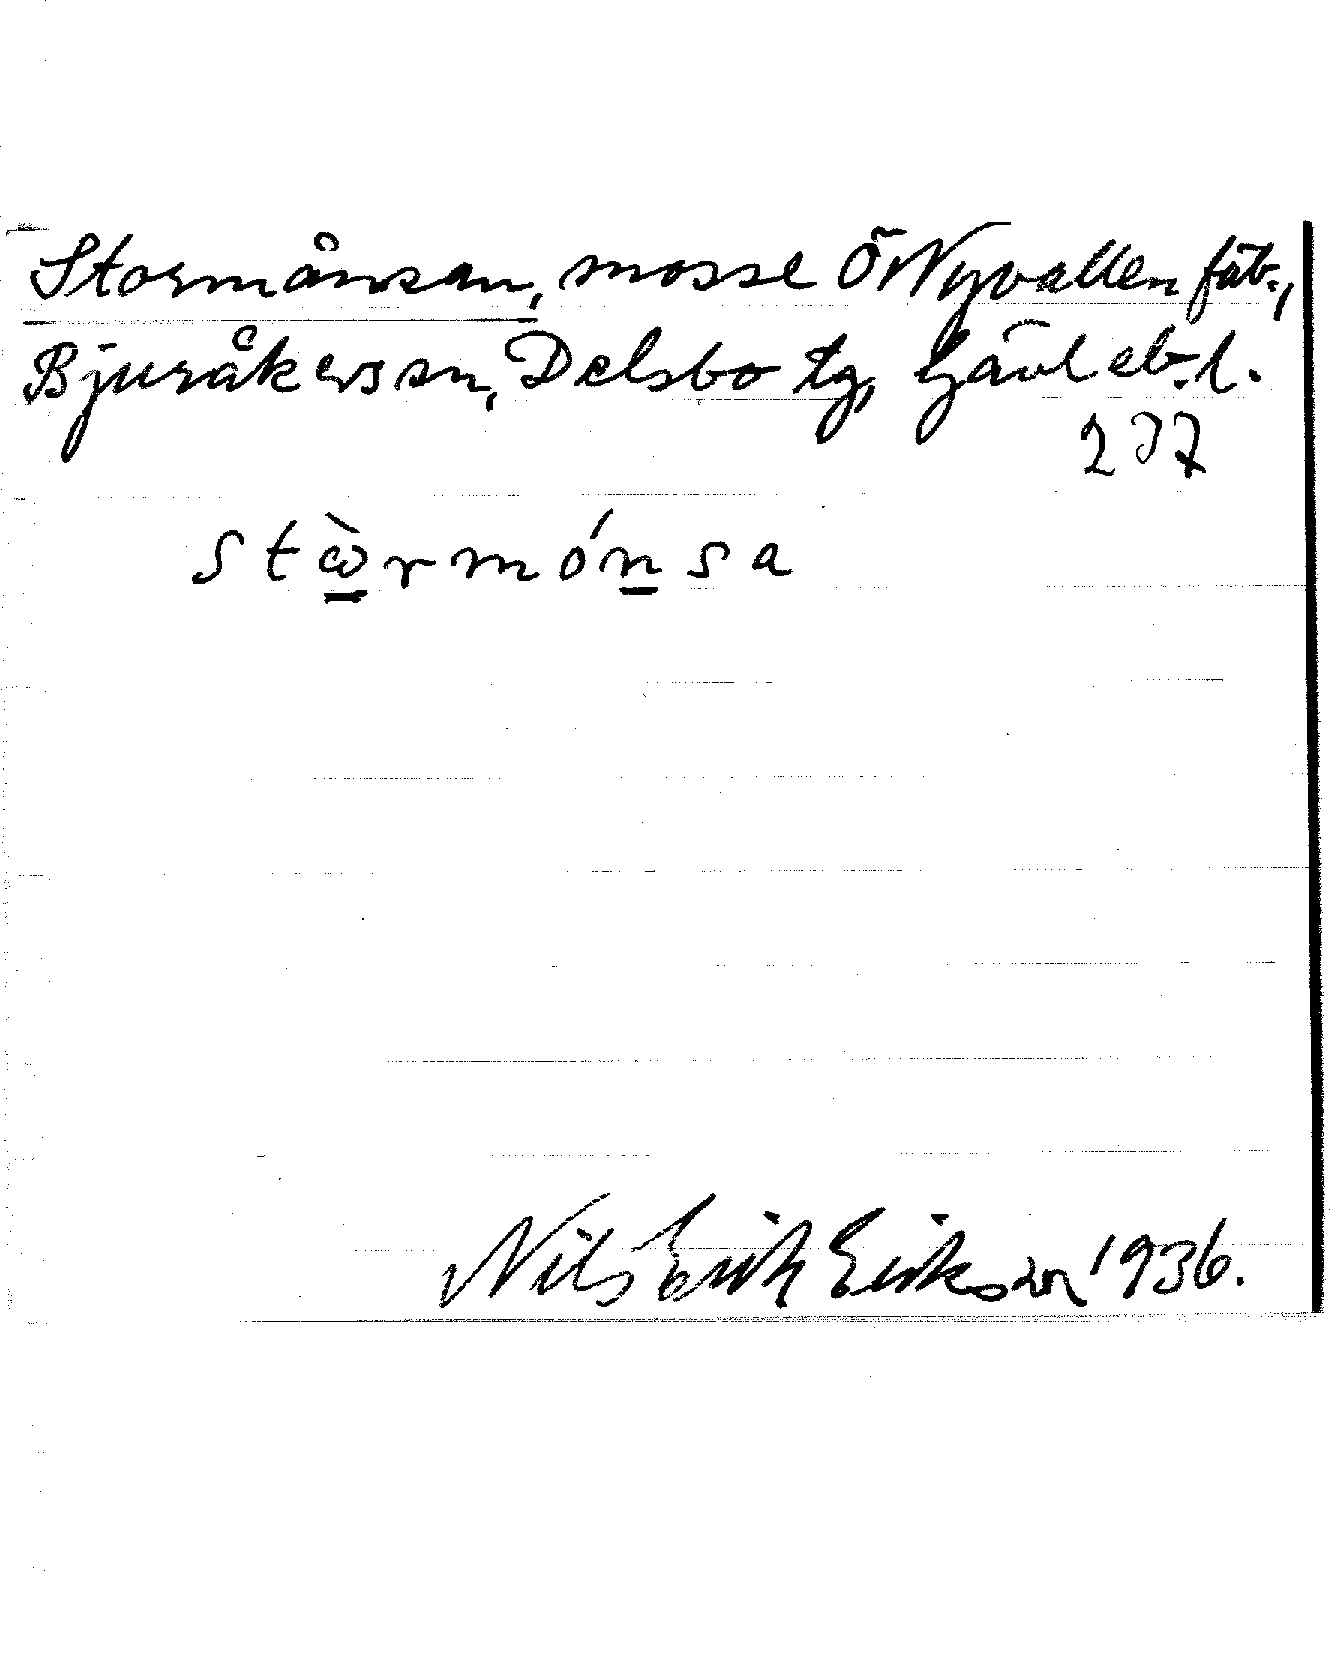 Stormånsan, mosse Ö Nyvallen fäb.,
Bjuråkers sn, Delsbo tg, Gävleb. l.
237
stὼ̱rmóṉsa
Nils Erik Erikson 1936.